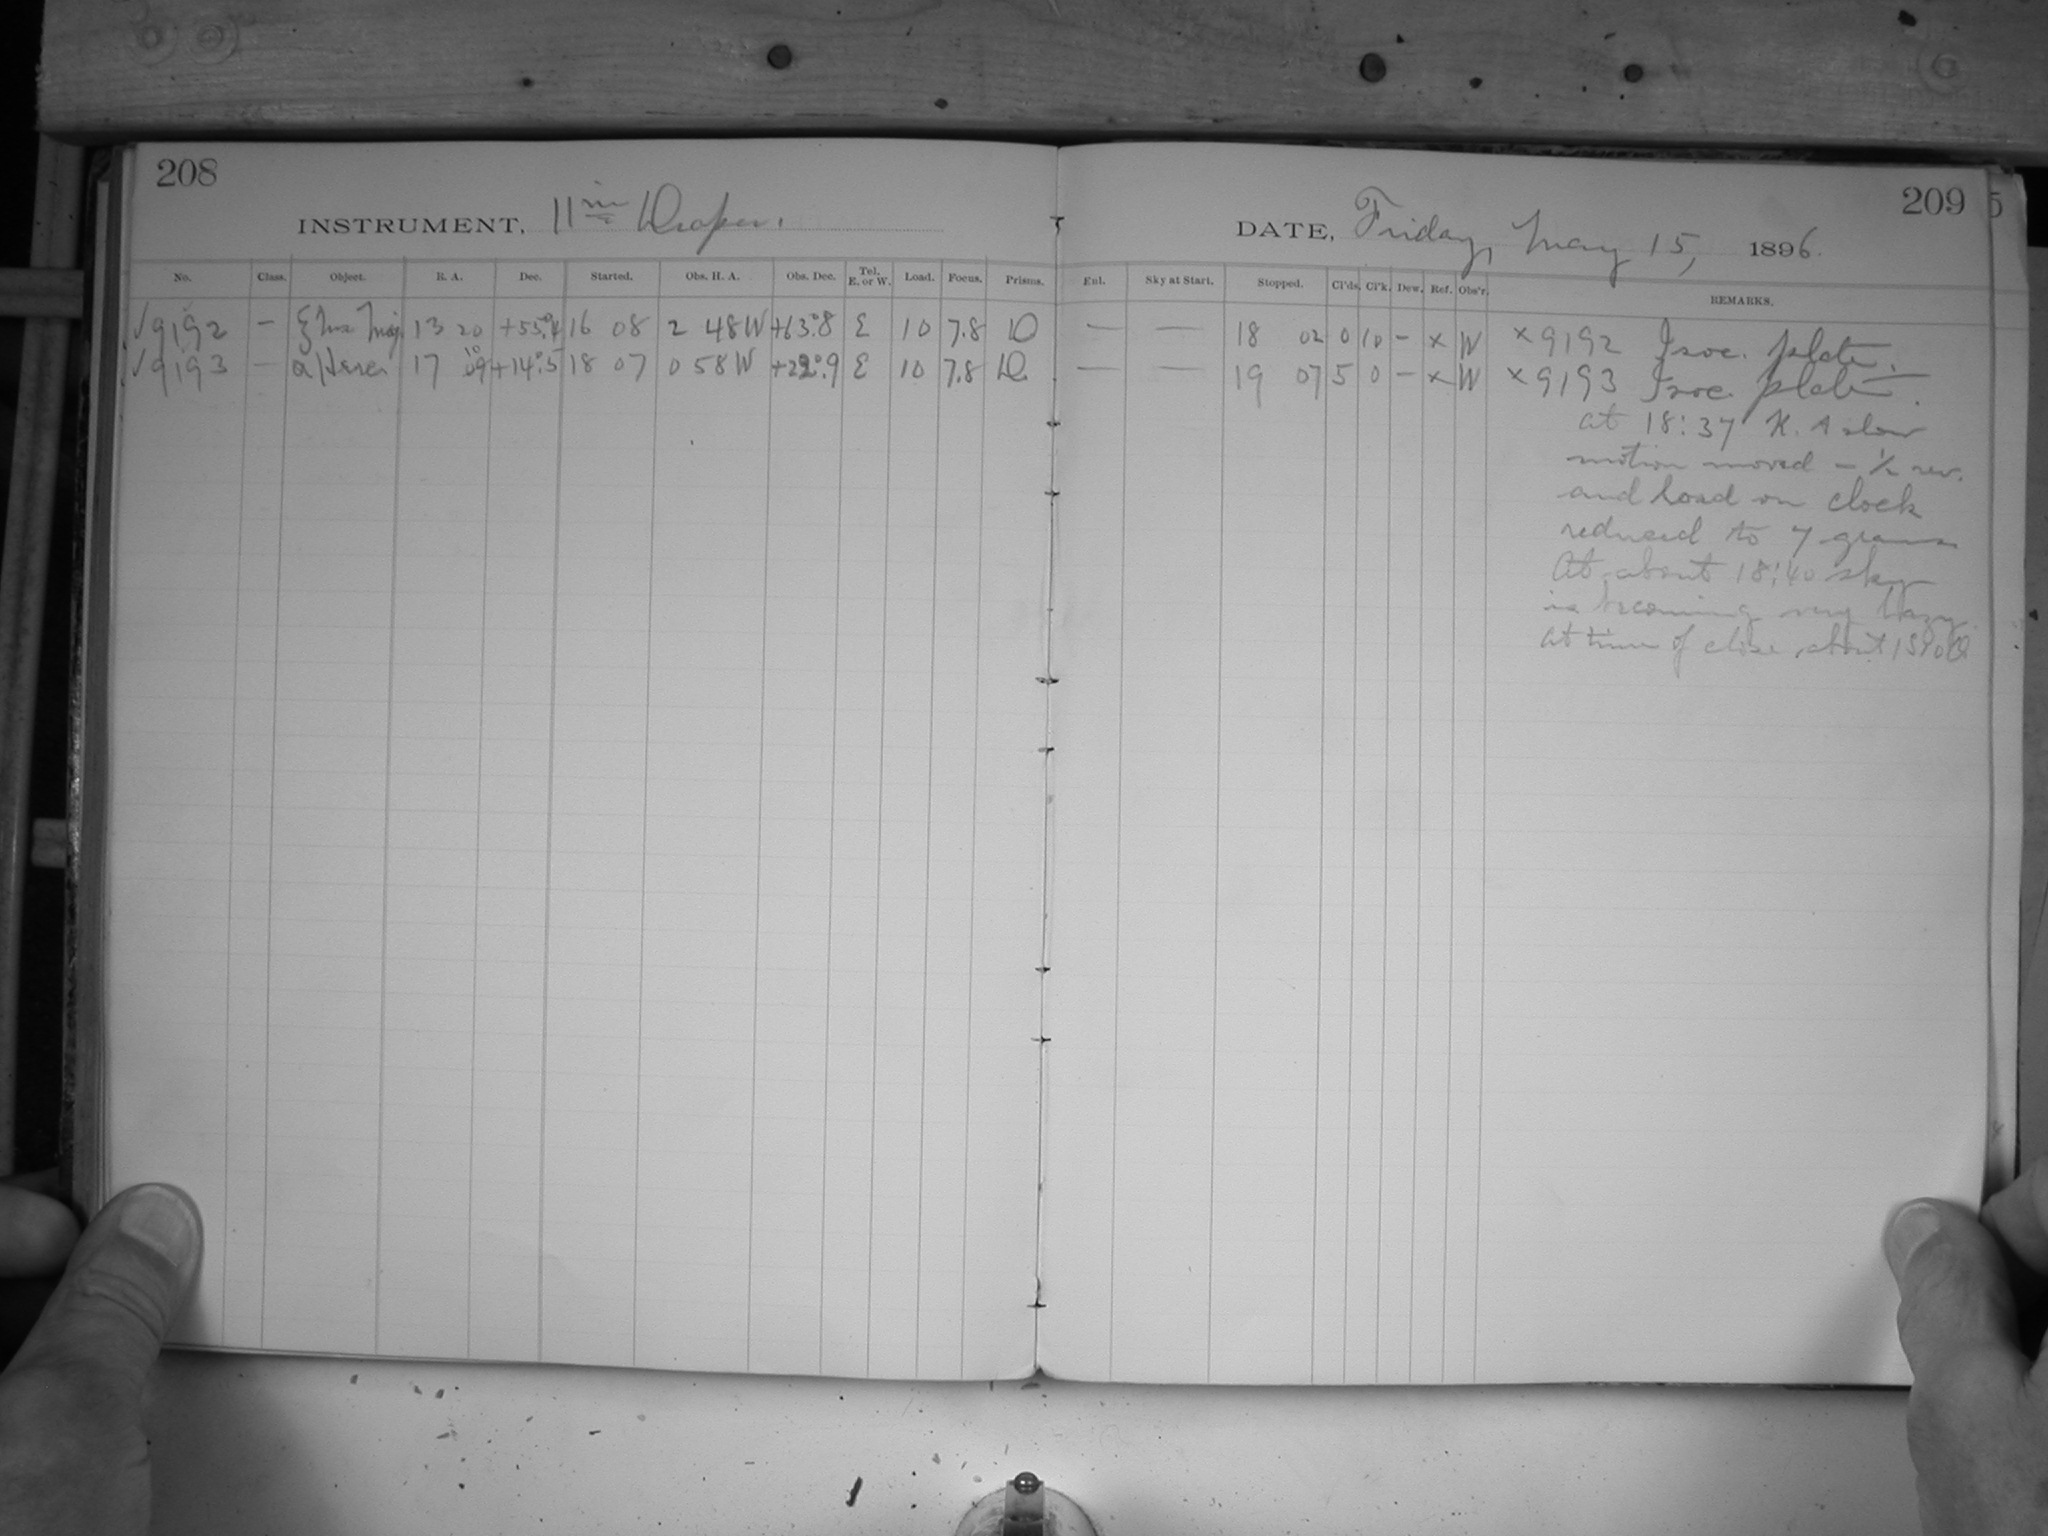 208
INSTRUMENT, 11 in Draper.
No. Class. Object. R. A. Dec. Started. Obs. H. A. Obs. Dec. Tel. E. or W. Load. Focus. Prisms.
√9192 — ξ Urs Maj. 13 20 +55°.4 16 08 2 48 W +63°.8 E 10 7.8 D
√9193 — α Herc. 17 09 +14°.5 18 07 0 58 W +22°.9 E 10 7.8 D
209
DATE, Friday, May 15, 1896.
Eul. Sky at Start. Stopped. Cl'ds. Cl'k. Dew. Ref. Obs'r. REMARKS.
— — 18 02 0 10 — x W x 9192 Isoc. plate.
— — 19 07 5 0 — x W x 9193 Isoc. plate.
at 18:37 R. A slow
motion moved – ½ rev.
and load on clock
reduced to 7 grams
At about 18:40 sky
is becoming very hazy
at time of close about
5